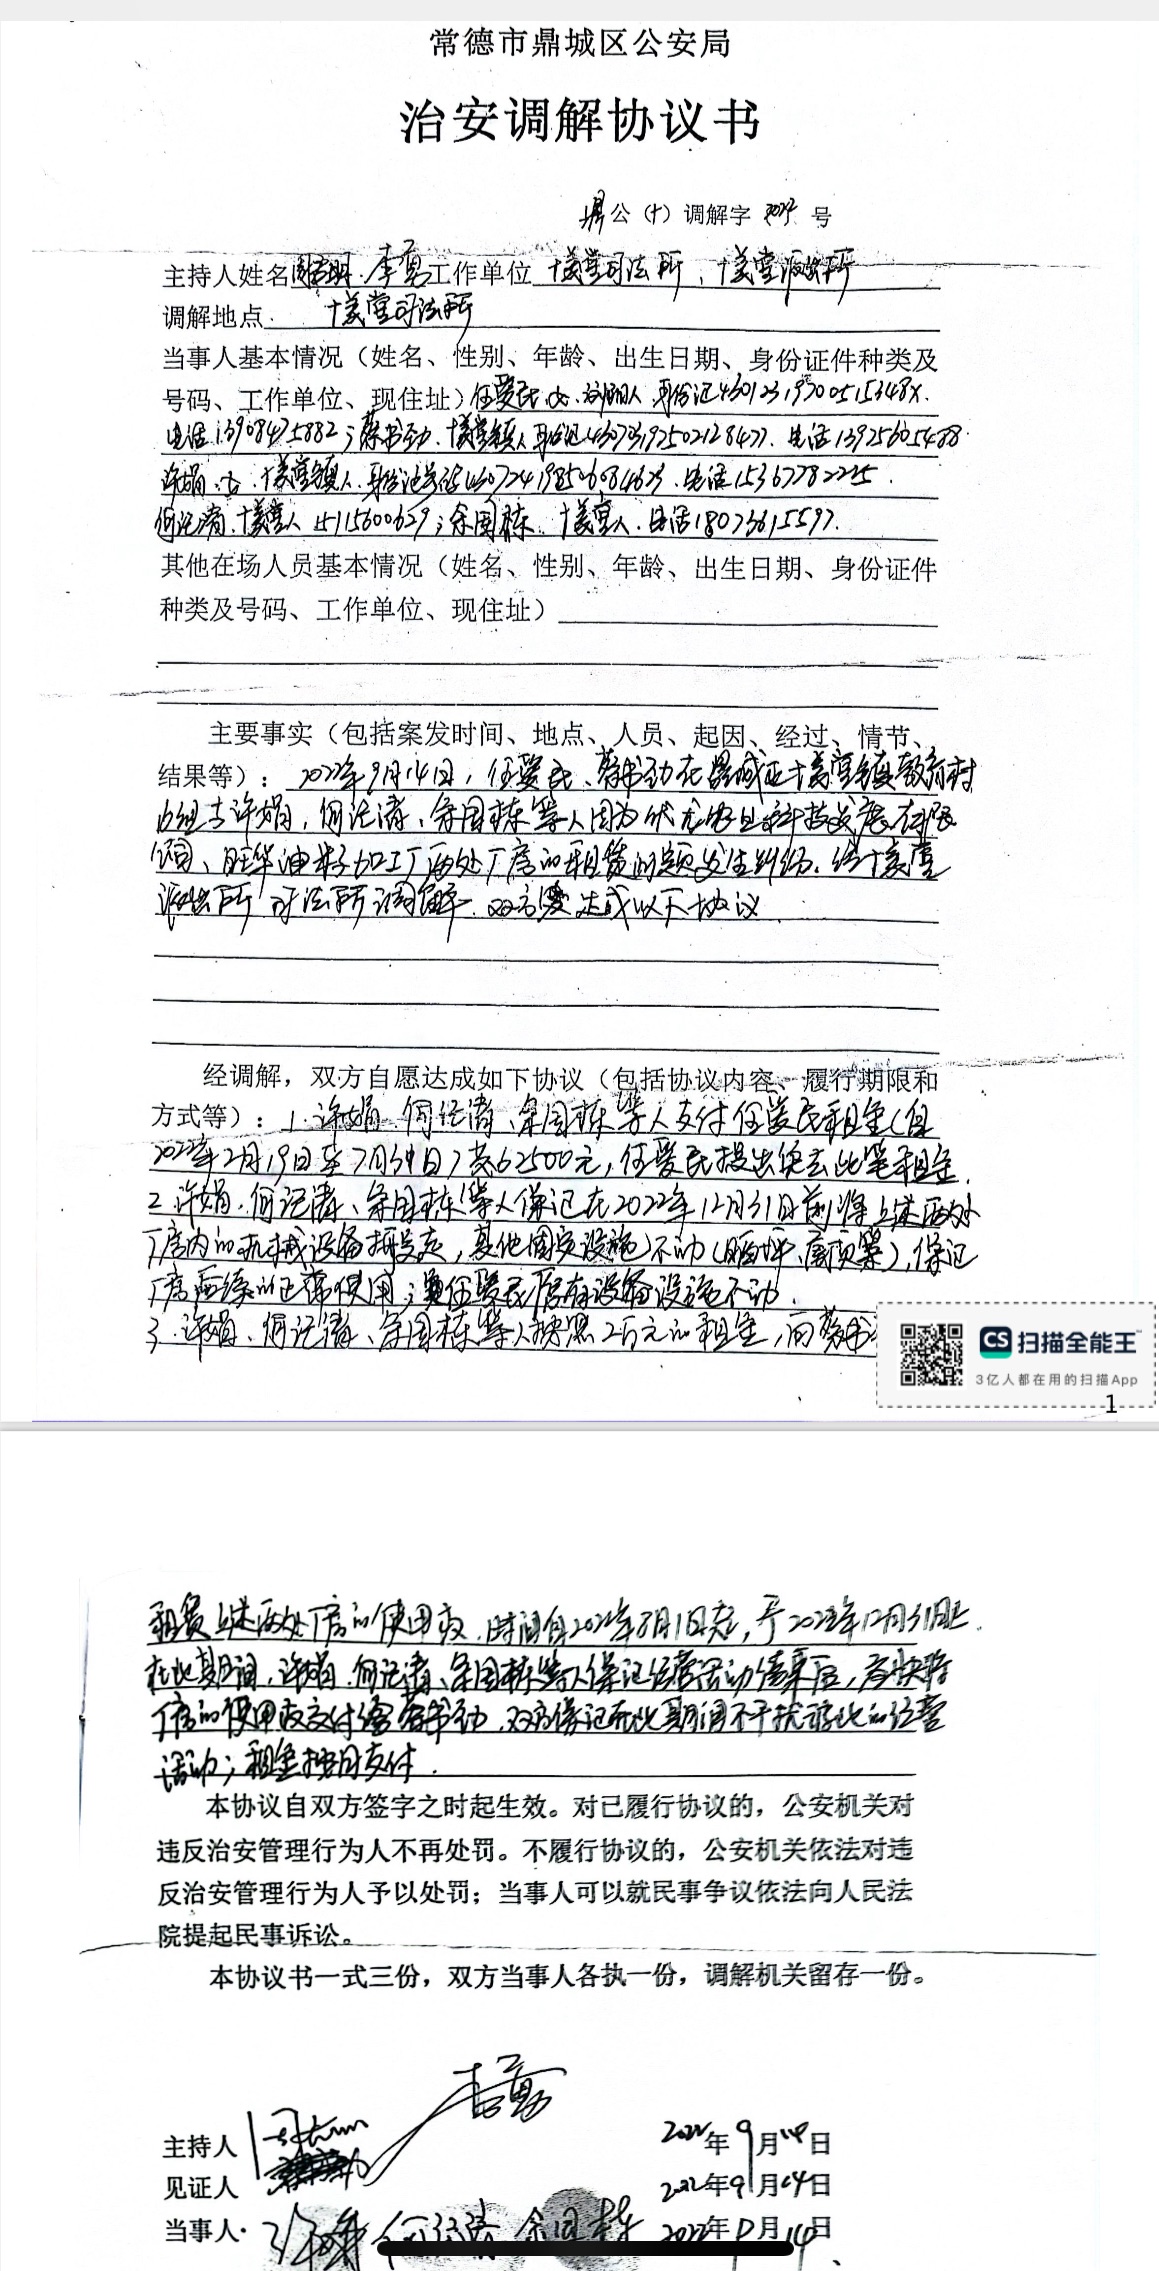 常德市鼎城区公安局
治安调解协议书
鼎公（十）调解字 2022 号
主持人姓名 李勇 工作单位 十美堂司法所、十美堂派出所
调解地点 十美堂司法所
当事人基本情况（姓名、性别、年龄、出生日期、身份证件种类及
号码、工作单位、现住址）任爱民 女 身份证43012319700515348X.
电话13908475882；蔡书劲. 十美堂镇人 电话13925605488
许娟. 女. 十美堂镇人. 身份证号码 电话15367782225.
何记清. 十美堂人 ；余国栋. 十美堂人. 电话18073615597.
其他在场人员基本情况（姓名、性别、年龄、出生日期、身份证件
种类及号码、工作单位、现住址）
主要事实（包括案发时间、地点、人员、起因、经过、情节、
结果等）：2022年9月14日，任爱民、蔡书劲在鼎城区十美堂镇 村
6组与许娟，何记清、余国栋等人因为 农业科技发展有限
公司、旺华油籽加工厂两处厂房的租赁问题发生纠纷. 经十美堂
派出所 司法所调解. 双方 达成以下协议
经调解，双方自愿达成如下协议（包括协议内容、履行期限和
方式等）：1. 许娟. 何记清、余国栋等人支付任爱民租金（自
2022年2月19日至7月31日）共62500元，任爱民提出免去此笔租金.
2. 许娟. 何记清、余国栋等人保证在2022年12月31日前将上述两处
厂房内的机械设备拆走，其他固定设施不动（晒坪、房顶等），保证
厂房后续的正常使用； 任爱民原有设备设施不动.
3. 许娟、何记清、余国栋等人按照2万元的租金，向蔡书
CS 扫描全能王
3亿人都在用的扫描App
1
租赁上述两处厂房的使用权，时间自2022年8月1日起，于2022年12月31日止.
在此期间，许娟. 何记清、余国栋等人保证经营活动结束后，尽快将
厂房的使用权交付给蔡书劲. 双方保证在此期间不干扰彼此的经营
活动；租金按月支付.
本协议自双方签字之时起生效。对已履行协议的，公安机关对
违反治安管理行为人不再处罚。不履行协议的，公安机关依法对违
反治安管理行为人予以处罚；当事人可以就民事争议依法向人民法
院提起民事诉讼。
本协议书一式三份，双方当事人各执一份，调解机关留存一份。
李勇
主持人 2022年9月14日
见证人 2022年9月14日
当事人 许娟 何记清 余国栋 2022年9月14日